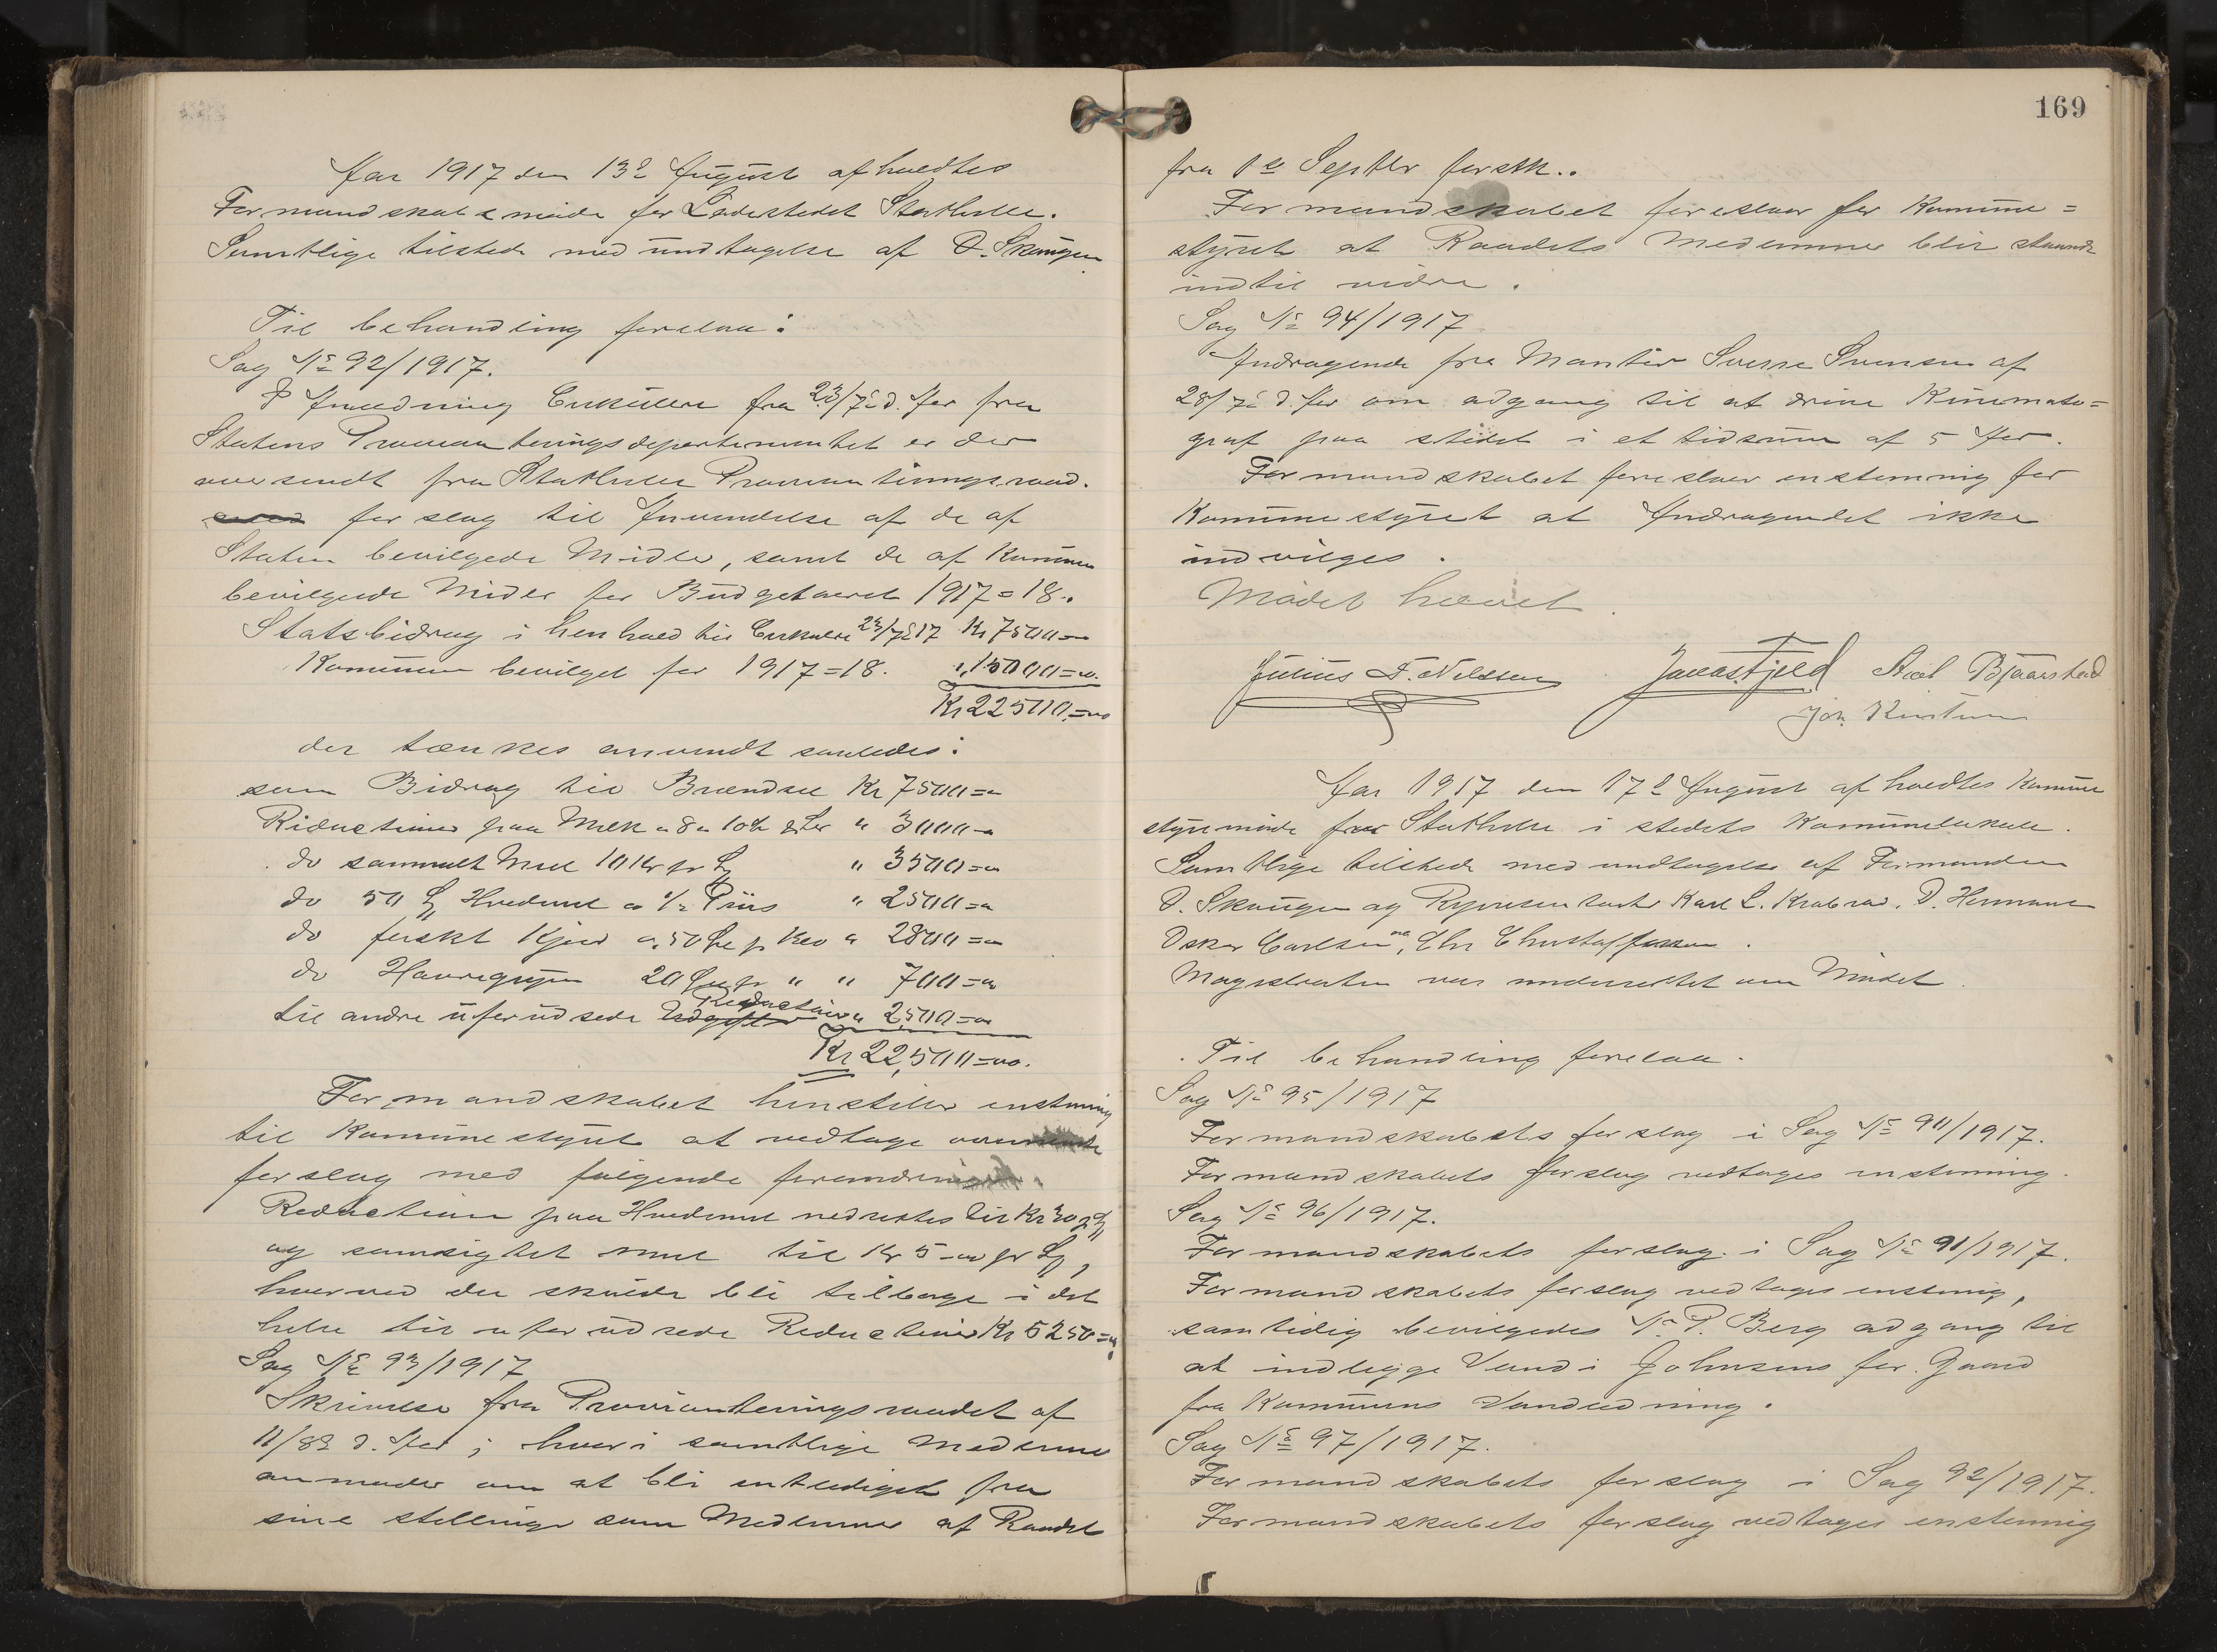 Aar 1917 den 13de August afholdtes
Formandskabsmøde for Ladestedet Stathelle.
Samtlige tilstede med undtagelse af D. Skougen
Til behandling forelaa:
Sag No 92/1917.
I Anledning Cirkulære fra 23/7 d. Aar fra
Statens Provianteringsdepartementet er der
oversendt fra Stathelle Provianteringsraad.
forslag til Anvendelse af de af
Staten bevilgede Midler, samt de af Kommunen
bevilgede Midler for Budgetaaret 1917=18.
Statsbidrag i henhold til Cirkulære 23/7 17 Kr 7500=00
Kommunen bevilget for 1917=18. " 15000=00.
Kr 22500=00
der tænkes anvendt saaledes:
som Bidrag til Brændsel Kr 7500=00
Reductioner paa Melk a 8 a 10 Øre pr Ltr " 3000=00
do sammalt Mel 10 Kr pr Sæk " 3500=00
do 50 Sæk Hvedemel a 1/2 Priis " 2500=00
do ferskt Kjød a 50 Øre pr Kilo " 2800=00
do Havregryn 20 Øre pr " " 700=00
til andre uforudsede Udgifter Reductioner " 2,500=00
Kr 22,500=00.
Formandskabet henstiller enstemmig
til Kommunestyret at vedtage
forslag med følgende forandring
Reduction paa Hvedemel nedsættes til Kr pr Sæk
og samsigtet mel til Kr 5-00 pr Sæk,
hvorved der skulde bli tilbage i det
hele til uforudsede Reductioner Kr 5250=00
Sag No 93/1917
Skrivelse fra Provianteringsraadet af
11/8 d. Aar; hvori samtlige Medlemmer
anmoder om at bli entlediget fra
sine stillinger som Medlemmer af Raadet
169
fra 1ste Septbr førstk..
Formandskabet foreslaar for Kommune=
styret at Raadets Medlemmer blir staaende
indtil videre.
Sag No 94/1917
Andragende fra Montør Sverre Svensen af
28/7 d. Aar om adgang til at drive Kinemato=
graf paa stedet i et tidsrum af 5 Aar.
Formandskabet foreslaar enstemmig for
Kommunestyret at Andragendet ikke
indvilges.
Mødet hævet.
Julius F. Nilssen Jonas Fjeld Axel Bjaarstad
Joh.
Aar 1917 den 17de August afholdtes Kommune
styremøde for Stathelle i stedets Kommunelokale.
Samtlige tilstede med undtagelse af Formanden
D. Skougen og Repræsentanter Karl L. Krabrød, D. Hermansen
Oskar Carlsen og Chr Christoffersen.
Magistraten var underrettet om Mødet.
Til behandling forelaa.
Sag No 95/1917
Formandskabets forslag i Sag No 90/1917.
Formandskabets forslag vedtages enstemmig.
Sag No 96/1917.
Formandskabets forslag i Sag No 91/1917.
Formandskabets forslag vedtages enstemig,
samtidig bevilgedes N. P. Berg adgang til
at indlegge Vand i Johnsens før. Gaard
fra Kommunens Vandledning.
Sag No 97/1917.
Formandskabets forslag i Sag 92/1917.
Formandskabets forslag vedtages enstemmig